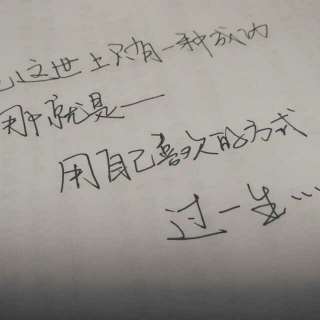 这世上只有一种成功
那就是——
用自己喜欢的方式
过一生…